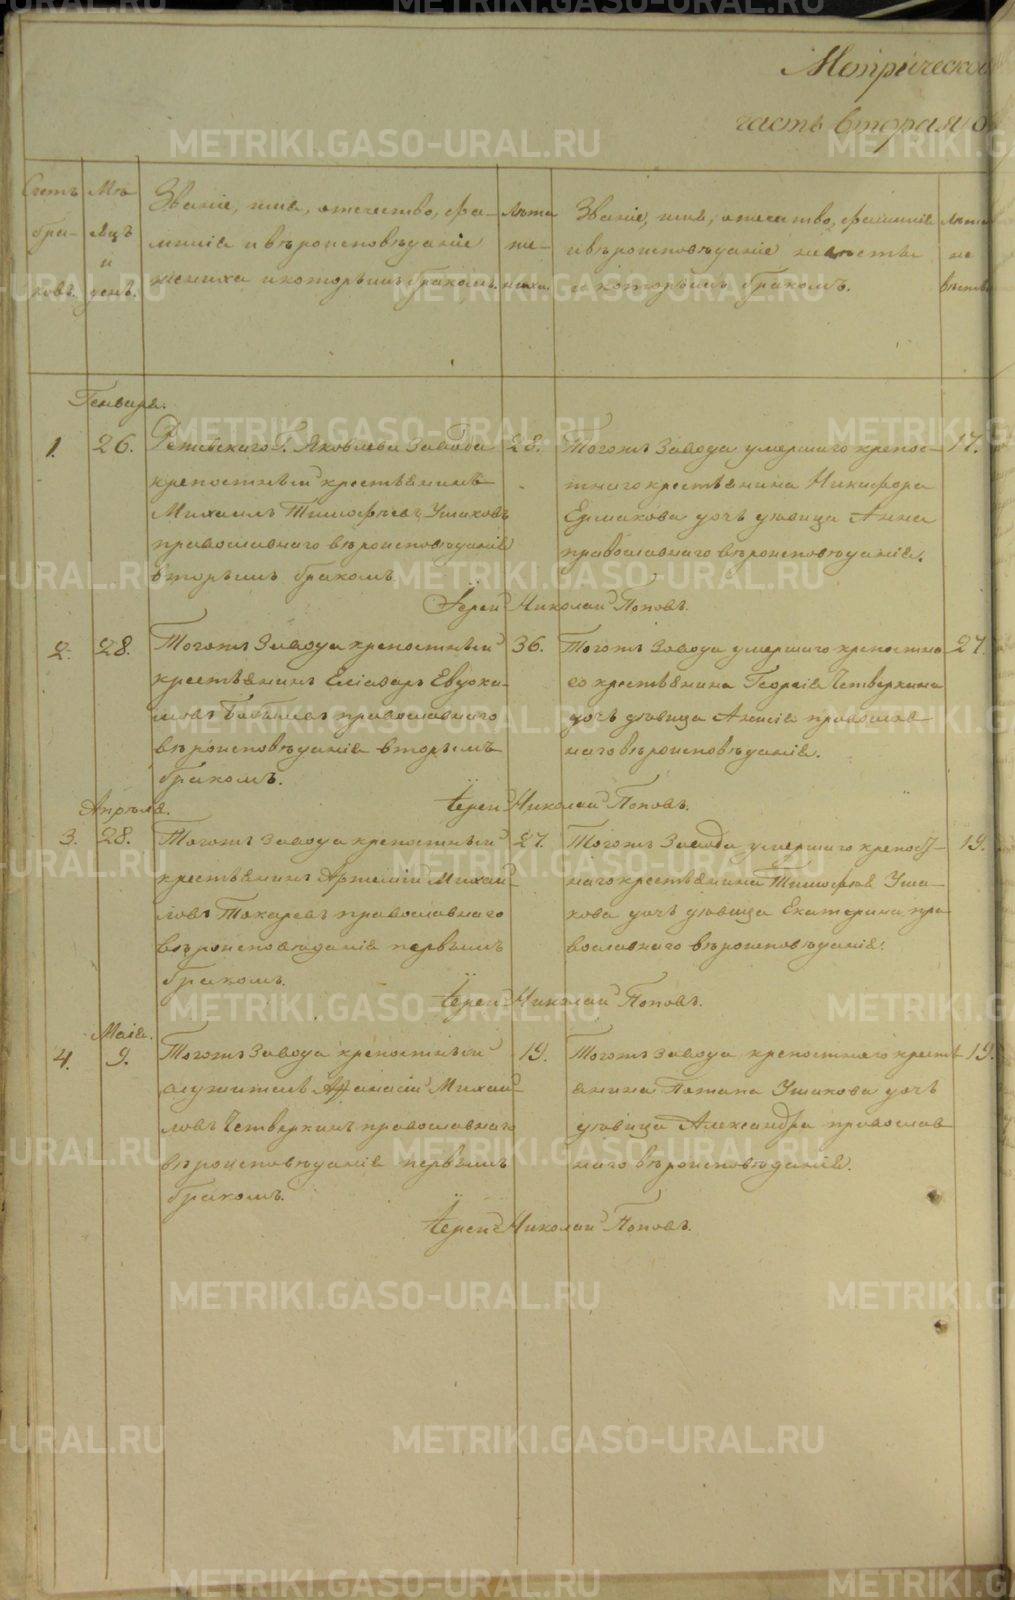 Метрической
часть вторая, о
Счетъ бра- ковъ.
Мѣ- сяцъ и день.
Званіе, имя, отечество, фа-
милія и вѣроисповѣданіе
жениха и которымъ бракомъ.
Лѣта же- ниха.
Званіе, имя, отечество, фамилія
и вѣроисповѣданіе невѣсты
и которымъ бракомъ.
Лѣта не вѣсты
Генваря.
1. 26. Режевскаго Г. Яковлева Завода
крепостный крестьянинъ
Михаилъ Тимофѣевъ Ушаковъ
православнаго вѣроисповѣданія
вторымъ бракомъ
28.
Тогожъ Завода умершаго крепос-
тнаго крестьянина Никифора
Ермакова дочь девица Анна
православнаго вѣроисповѣданія.
17.
Іерей Николай Поповъ.
2. 28. Тогожъ Завода крепостный
крестьянинъ Елиазаръ Евдоки-
мовъ Бабушевъ православнаго
вѣроисповѣданія вторымъ
бракомъ.
36.
Тогожъ Завода умершаго крепостна
го крестьянина Георгія Четверкина
дочь девица Анисія православ
наго вѣроисповѣданія.
27.
Іерей Николай Поповъ.
Апрѣля.
3. 28. Тогожъ Завода крепостный
крестьянинъ Артемій Михай-
ловъ Токаревъ православнаго
вѣроисповѣданія первымъ
бракомъ.
27.
Тогожъ Завода умершаго крепост-
наго крестьянина Тимофѣя Уша-
кова дочь девица Екатерина пра
вославнаго вѣроисповѣданія.
19.
Іерей Николай Поповъ.
Маія.
4. 9. Тогожъ Завода крепостный
служитель Афанасій Михай-
ловъ Четверкинъ православнаго
вѣроисповѣданія первымъ
бракомъ.
19.
Тогожъ Завода крепостнаго кресть
янина Потапа Ушакова дочь
девица Александра православ
наго вѣроисповѣданія.
19.
Іерей Николай Поповъ.
METRIKI.GASO-URAL.RU